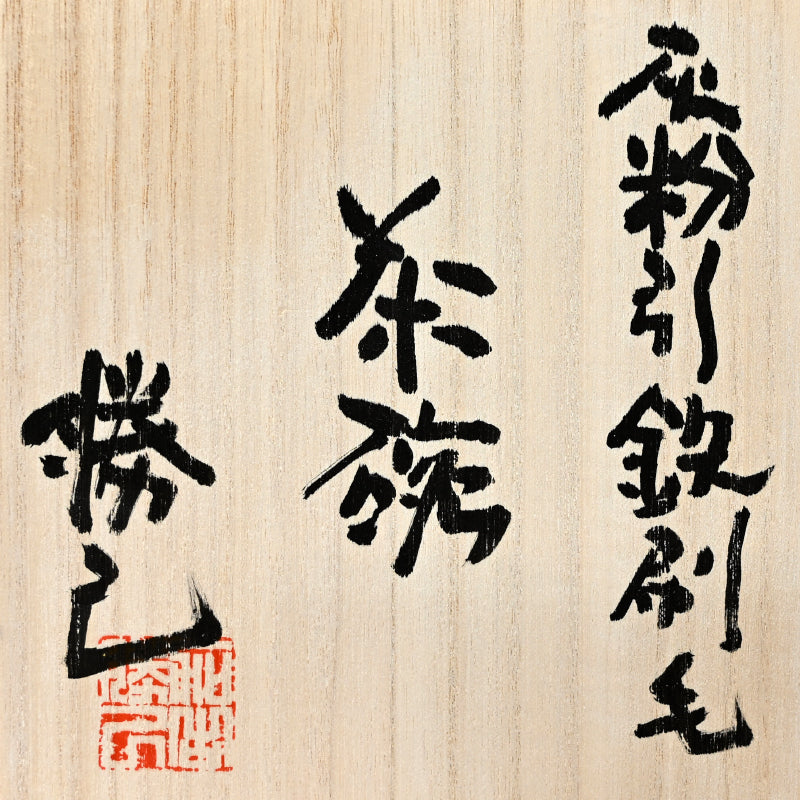 灰粉引鉄刷毛
茶碗
勝己